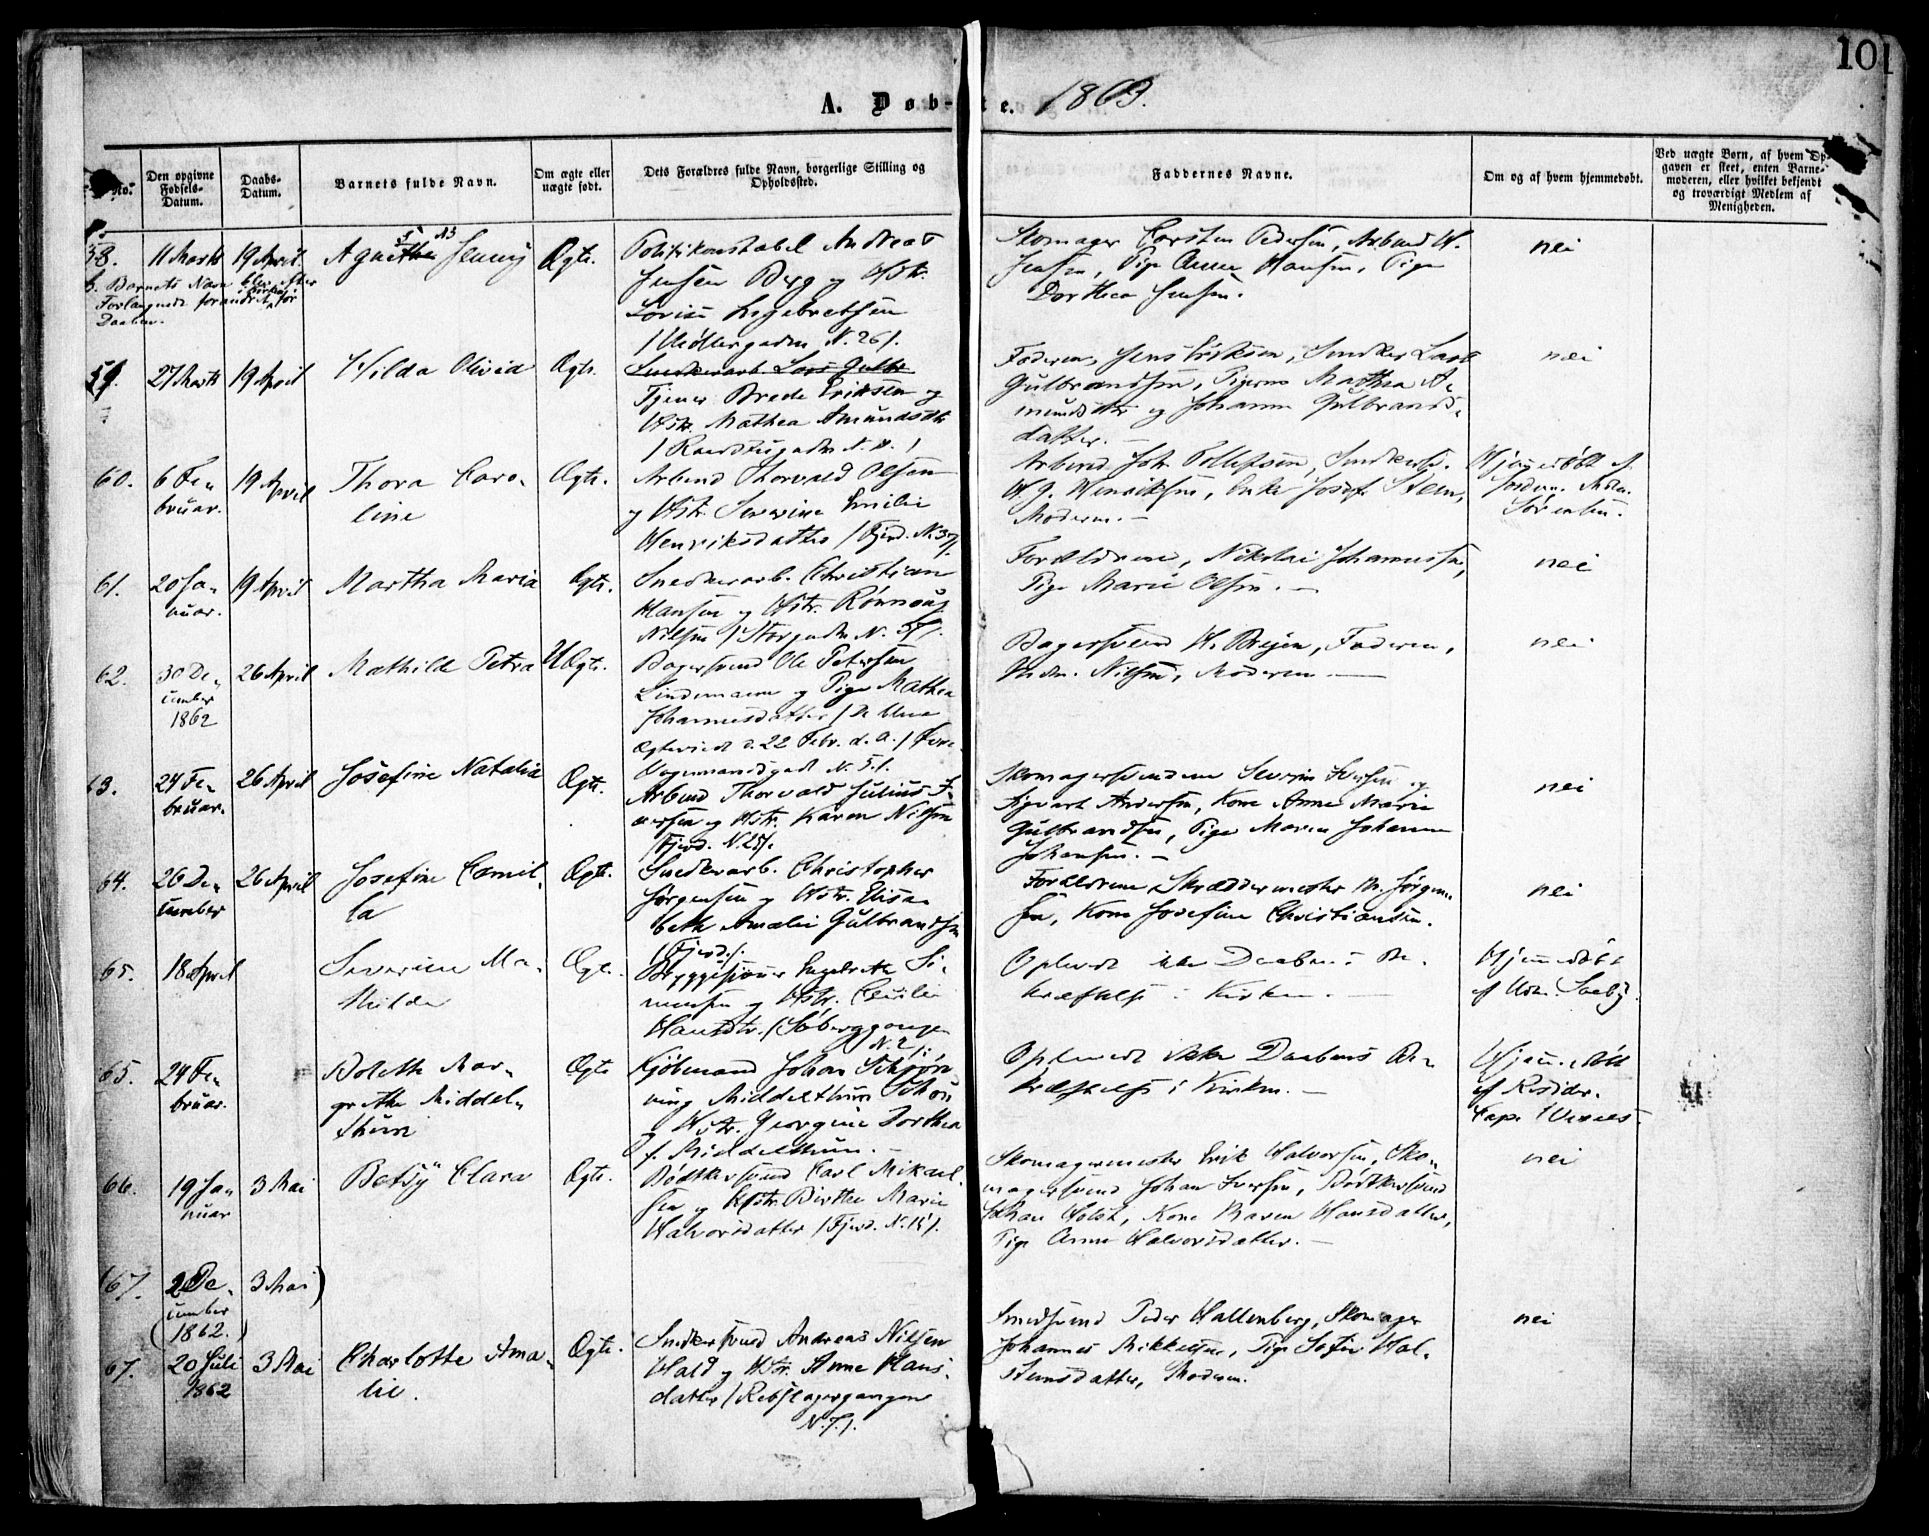 101
A. Døb-te. 1863.
No.
Den opgivne Fødsels-Datum.
Daabs-Datum.
Barnets fulde Navn.
Om ægte eller uægte født.
Dets Forældres fulde Navn, borgerlige Stilling og Opholdssted.
Faddernes Navne.
Om og af hvem hjemmedøbt.
Ved uægte Børn, af hvem Opgaven er skeet, enten Barnemoderen, eller hvilket bekjendt og troværdigt Medlem af Menigheden.
58.
11 Marts
19 April
Jenny
Ægte.
Politikonstabel Andreas
Jensen Berg og Hstr.
Lovise Ingebretsen
/Møllergaden N. 26/.
Skomager Carsten Pedersen, Arbmd H.
Jensen, Pige Anne Hansen, Pige
Dorthea Jensen.
nei
Barnets Navn blev efter
Forlangende forandret før
Daaben.
59.
27 Marts
19 April
Hilda Olivia
Ægte.
Snedkerarb. Lars Gulbr
Tjener Brede Eriksen og
Hstr. Mathea Amundsdtr
Faderen, Jens Eriksen, Snedker Lars
Gulbrandsen, Pigerne Mathea A-
mundsdtr og Johanne Gulbrands-
datter.
nei
60.
6 Fe-
bruar.
19 April
Thora Caro-
line
Ægte.
Arbmd Thorvald Olsen
og Hstr. Severine Emilie
Henriksdatter /Fjerd. N. 37/.
Arbmd Joh. Tollefsen, Snedkersv.
H. J. Henriksen, Enke Josef. Steen,
Moderen.
Hjemmedøbt af
Jordm. Mdm.
Sørensen.
61.
20 Ja-
nuar.
19 April
Martha Maria
Ægte.
Snedkerarb. Christian
Hansen og Hstr. Rønnaug
Nilsen /Storgaden N. 37/.
Forældrene, Nikolai Johannessen,
Pige Marie Olsen.
nei
62.
30 De-
cember
1862
26 April
Mathilde Petra
UÆgte.
Bagersvend Ole Petersen
Lindemann og Pige Mathea
Johannesdatter /De bleve
Ægteviede d. 22 Febr. d. A./
Vognmandsgad N. 5/.
Bagersvend H. Brejen, Faderen,
Mdm. Nilsen, Moderen
nei
63.
24 Fe-
bruar.
26 April
Josefine Natalia
Ægte.
Arbmd Thorvald Julius I-
versen og Hstr. Karen Nilsen
/Fjerd. N. 25/.
Skomagersvendene Severin Iversen og
Sigvart Andersen, Kone Anne Marie
Gulbrandsen, Pige Maren Johanne
Johansen.
nei
64.
26 De-
cember
26 April
Josefine Camil-
la
Ægte.
Snedkerarb. Christopher
Jørgensen og Hstr. Elisa-
beth Amalie Gulbrandsen
/Fjerd./.
Forældrene, Skræddermester M. Jørgen-
sen, Kone Josefine Christiansen.
nei
65.
18 April
Severine Ma-
thilde
Ægte.
Bryggesjouer Engebreth Si-
mensen og Hstr. Cecilie
Hansdtr. /Søberggangen
N. 2/.
Oplevede ikke Daabens Be-
kræftelse i Kirken.
Hjemmedøbt
af Mdm. Saeby.
65.
24 Fe-
bruar.
Bolette Mar-
grethe Middel-
thun
Ægte
Kjøbmand Johan
Middelthun
Hstr. Georgine Dorthea
f. Middelthun.
Oplevede ikke Daabens Be-
kræftelse i Kirken.
Hjemmedøbt
af Resider.
Cap.
66.
19 Ja-
nuar
3 Mai
Betsy Clara
Ægte.
Bødkersvend Carl Mikael-
sen og Hstr. Birthe Marie
Halvorsdatter /Fjerd. N. 15/.
Skomagermester Erik Halvorsen, Sko-
magersvend Johan Iversen, Bødkersvend
Johan Holst, Kone Maren Hansdatter,
Pige Anne Halvorsdatter.
nei
(67.
2 De-
cember
(1862.)
3 Mai)
67.
20 Juli
1862
3 Mai
Charlotte Ama-
lie.
Ægte.
Snedkersvend Andreas Nilsen
Hald og Hstr. Anne Hans-
datter /Rebslagergangen
N. 7/.
Smedsvend Peder Hallenberg, Skomager
Johannes Mikkelsen, Pige Sofie Hal-
stensdatter, Moderen.
nei